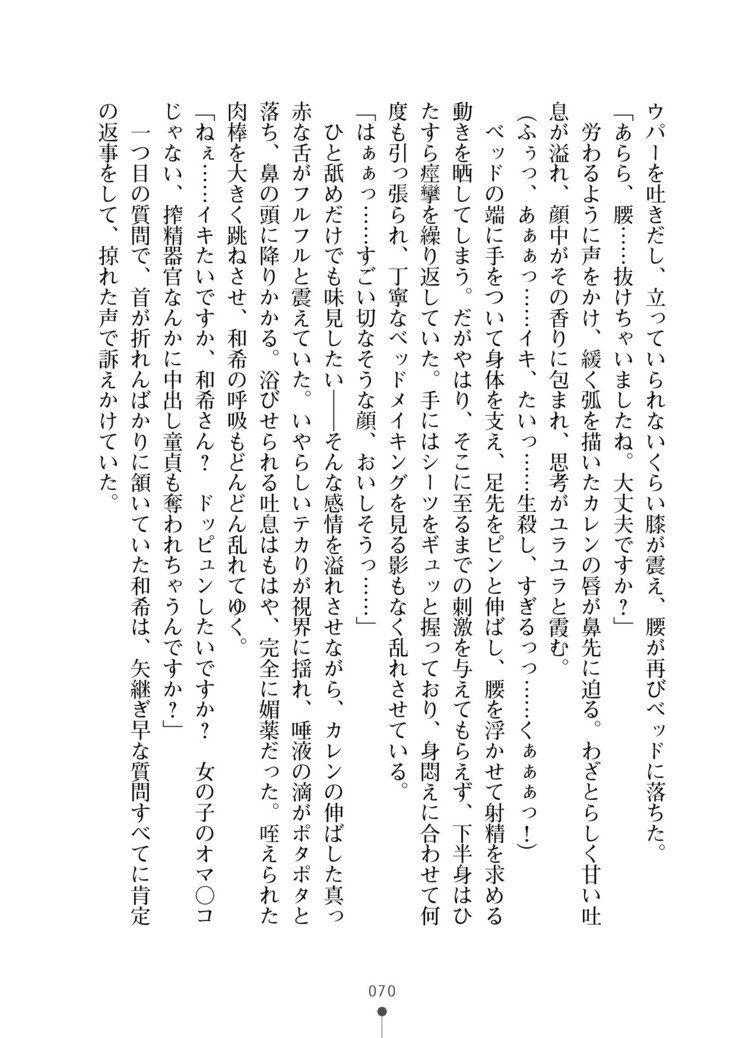 ウパーを吐きだし、立っていられないくらい膝が震え、腰が再びベッドに落ちた。
「あらら、腰……抜けちゃいましたね。大丈夫ですか？」
　労わるように声をかけ、緩く弧を描いたカレンの唇が鼻先に迫る。わざとらしく甘い吐
息が溢れ、顔中がその香りに包まれ、思考がユラユラと霞む。
（ふぅっ、あぁぁっ……イキ、たいっ……生殺し、すぎるっっ……くぁぁぁっ！）
　ベッドの端に手をついて身体を支え、足先をピンと伸ばし、腰を浮かせて射精を求める
動きを晒してしまう。だがやはり、そこに至るまでの刺激を与えてもらえず、下半身はひ
たすら痙攣を繰り返していた。手にはシーツをギュッと握っており、身悶えに合わせて何
度も引っ張られ、丁寧なベッドメイキングを見る影もなく乱れさせている。
「はぁぁっ……すごい切なそうな顔、おいしそうっ……」
　ひと舐めだけでも味見したい――そんな感情を溢れさせながら、カレンの伸ばした真っ
赤な舌がフルフルと震えていた。いやらしいテカりが視界に揺れ、唾液の滴がポタポタと
落ち、鼻の頭に降りかかる。浴びせられる吐息はもはや、完全に媚薬だった。咥えられた
肉棒を大きく跳ねさせ、和希の呼吸もどんどん乱れてゆく。
「ねぇ……イキたいですか、和希さん？　ドッピュンしたいですか？　女の子のオマ〇コ
じゃない、搾精器官なんかに中出し童貞も奪われちゃうんですか？」
　一つ目の質問で、首が折れんばかりに頷いていた和希は、矢継ぎ早な質問すべてに肯定
の返事をして、掠れた声で訴えかけていた。
070